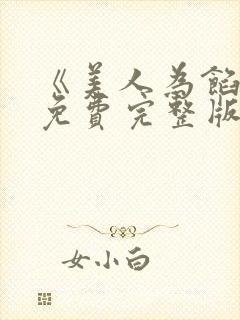 《美人为馅
免费完整版
女小白